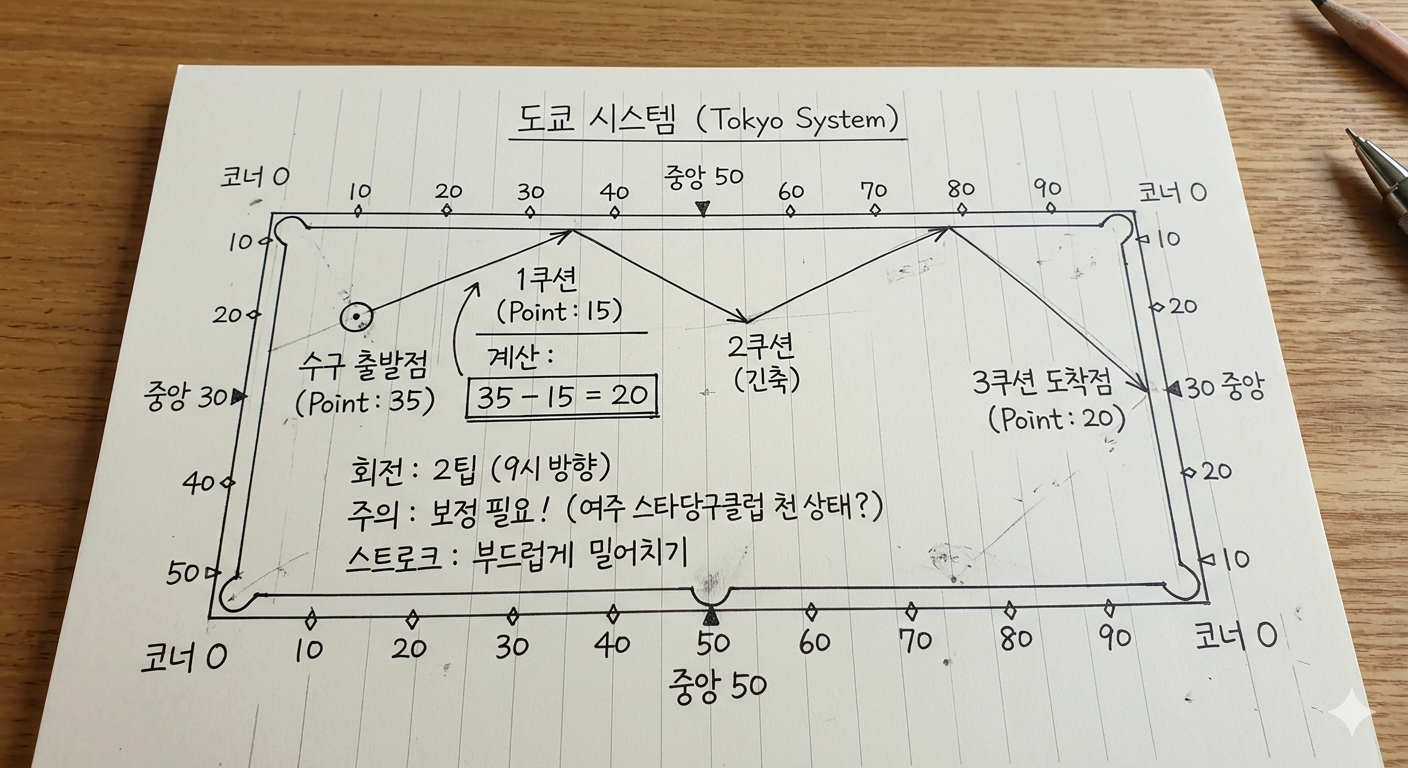 도쿄 시스템 (Tokyo System)
코너 0
10
20
30
40
중앙 50
60
70
80
90
코너 0
10
20
중앙 30
40
50
10
20
30 중앙
20
10
1쿠션
(Point: 15)
계산:
35 - 15 = 20
수구 출발점
(Point: 35)
2쿠션
(긴축)
3쿠션 도착점
(Point: 20)
회전: 2팁 (9시 방향)
주의: 보정 필요! (여주 스타당구클럽 천 상태?)
스트로크: 부드럽게 밀어치기
코너 0
10
20
30
40
50
60
70
80
90
코너 0
중앙 50